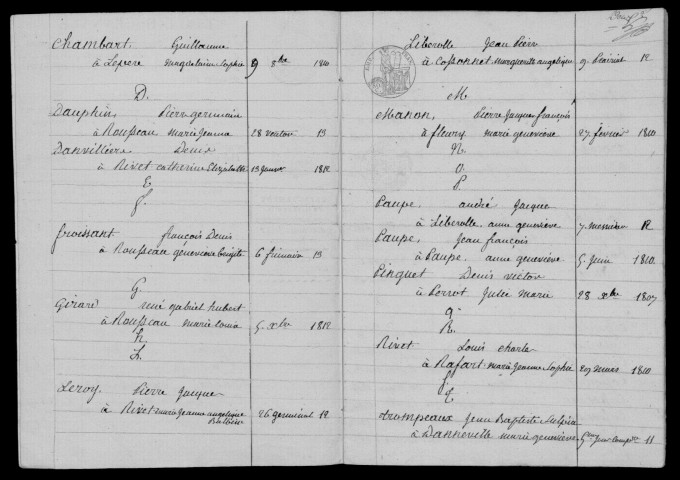 Chambart Guillaume
à Lepere Magdelaine Sophie 9 8bre 1810
D.
Dauphin Pierre germain
à Rousseau marie Jeanne 28 ventose 13
Danvilliers Denis
à Rivet catherine Elizabeth 13 Janvier 1812
E
f.
froissant françois Denis
à Rousseau geneviève 6 frimaire 13
G
Girard gabriel hubert
à Rousseau marie 5 xbre 1812
h.
L.
Leroy Pierre Jacque
à Rivet marie Jeanne angelique 26 germinal 12
Liberolle Jean Pierre
à Coponnet marguerite angelique 9 prairial 12
M
Manon, Pierre Jacque françois
à fleury marie geneviève 27 février 1810
N.
O.
P.
Paupe. andré Jacque
à Liberolle anne geneviève 7 messidor 12
Paupe, Jean françois
à Paupe. anne geneviève 5 Juin 1810
Pinguet Denis victor
à Perrot Julie Marie 28 xbre 1807
q
R.
Rivet Louis charle
à Rafart marie Jeanne Sophie 29 mars 1810
S.
t.
trompeaux Jean Baptiste Sulpice
à Danneville marie geneviève 5eme Jour Comp.re 11